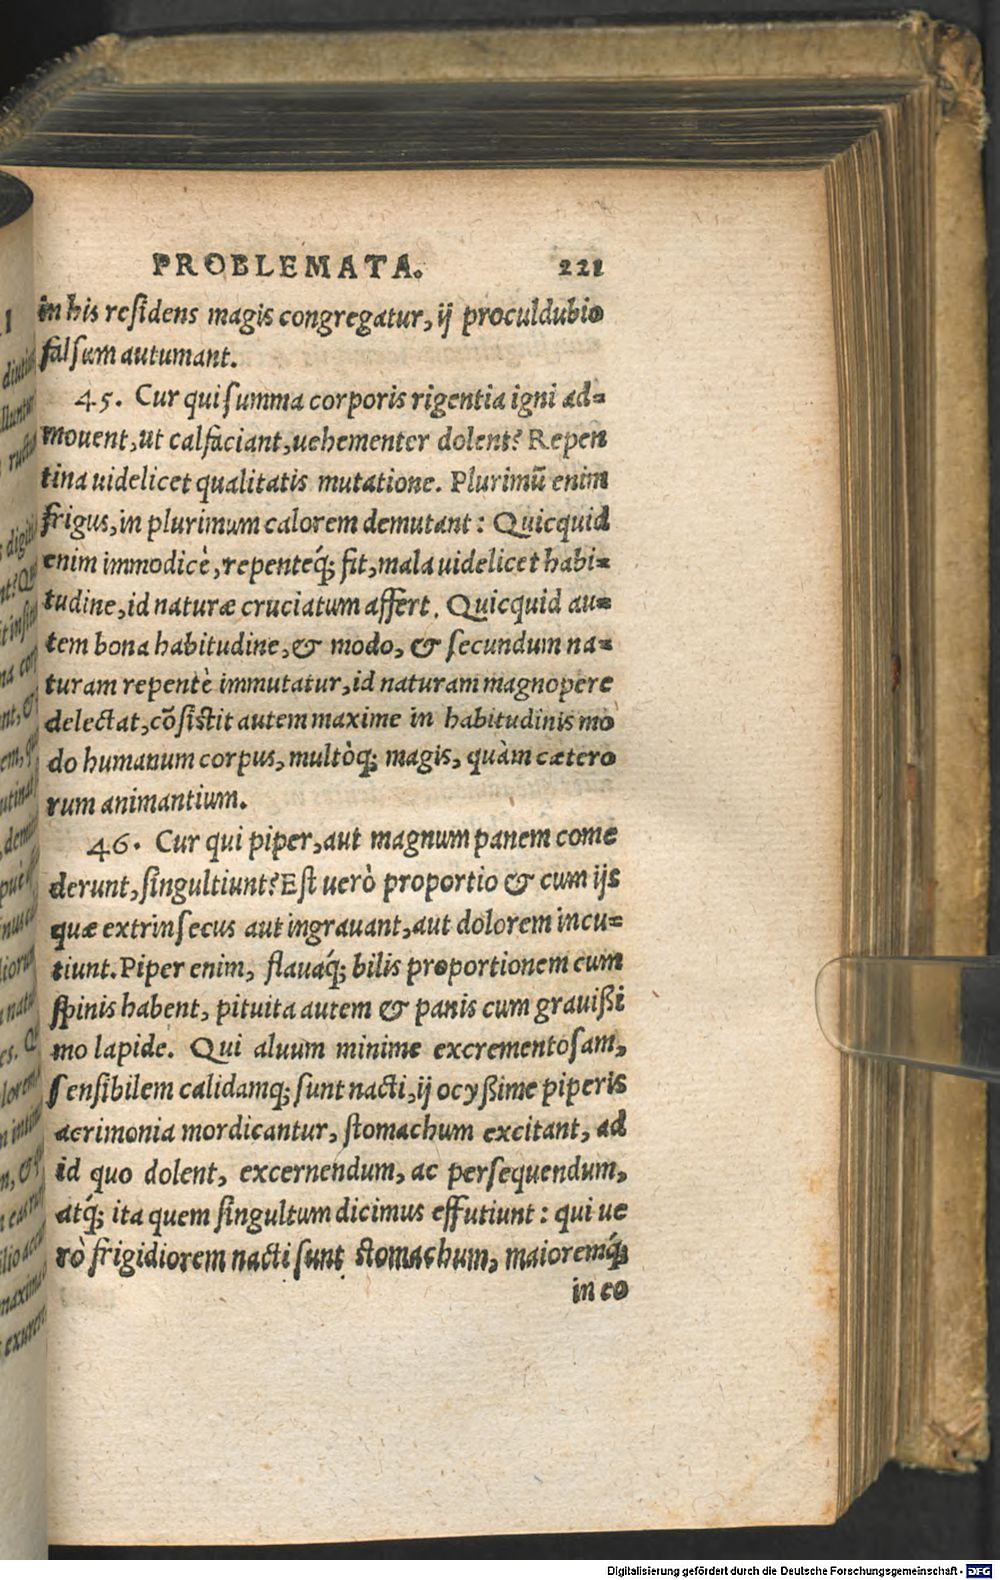 PROBLEMATA. 221
in his residens magis congregatur, ij proculdubio
falsum autumant.
45. Cur qui summa corporis rigentia igni ad=
mouent, ut calfaciant, uehementer dolent? Repen
tina uidelicet qualitatis mutatione. Plurimũ enim
frigus, in plurimum calorem demutant: Quicquid
enim immodicè, repenteq́; fit, mala uidelicet habi=
tudine, id naturæ cruciatum affert. Quicquid au=
tem bona habitudine, & modo, & secundum na=
turam repentè immutatur, id naturam magnopere
delectat, cõsistit autem maxime in habitudinis mo
do humanum corpus, multòq; magis, quàm cætero
rum animantium.
46. Cur qui piper, aut magnum panem come
derunt, singultiunt? Est uerò proportio & cum ijs
quæ extrinsecus aut ingrauant, aut dolorem incu=
tiunt. Piper enim, flauaq́; bilis proportionem cum
spinis habent, pituita autem & panis cum grauißi
mo lapide. Qui aluum minime excrementosam,
sensibilem calidamq; sunt nacti, ij ocyßime piperis
acrimonia mordicantur, stomachum excitant, ad
id quo dolent, excernendum, ac persequendum,
atq́; ita quem singultum dicimus effutiunt: qui ue
rò frigidiorem nacti sunt stomachum, maioremq́;
in eo
Digitalisierung gefördert durch die Deutsche Forschungsgemeinschaft - DFG